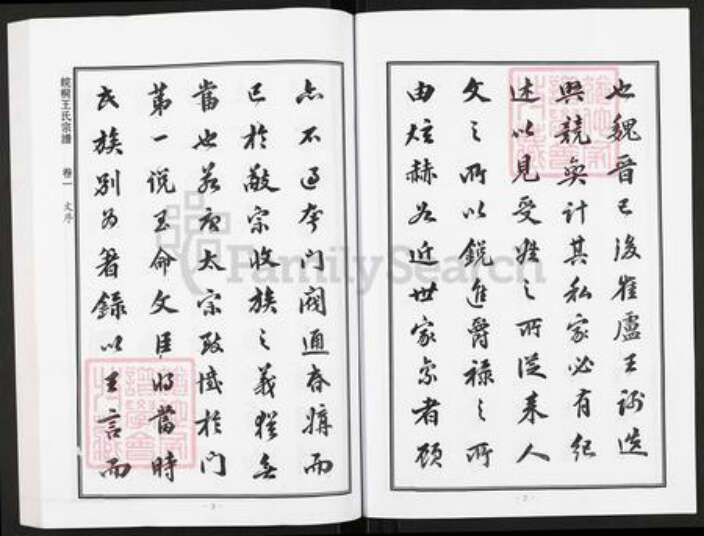 也魏晋已後崔盧王謝迭
興競奕計其私家必有紀
述以見受姓之所從来人
文之所以鋭進爵禄之所
由炫赫若近世家乘者顾
亦不過夸门閥通昏媾而
已於敬宗收族之義猶無
當也若唐太宗致憾於门
第一说至命文臣将當時
氏族别为著録以王言而
皖桐王氏宗譜 卷一 文序
- 2 -
- 3 -
FamilySearch